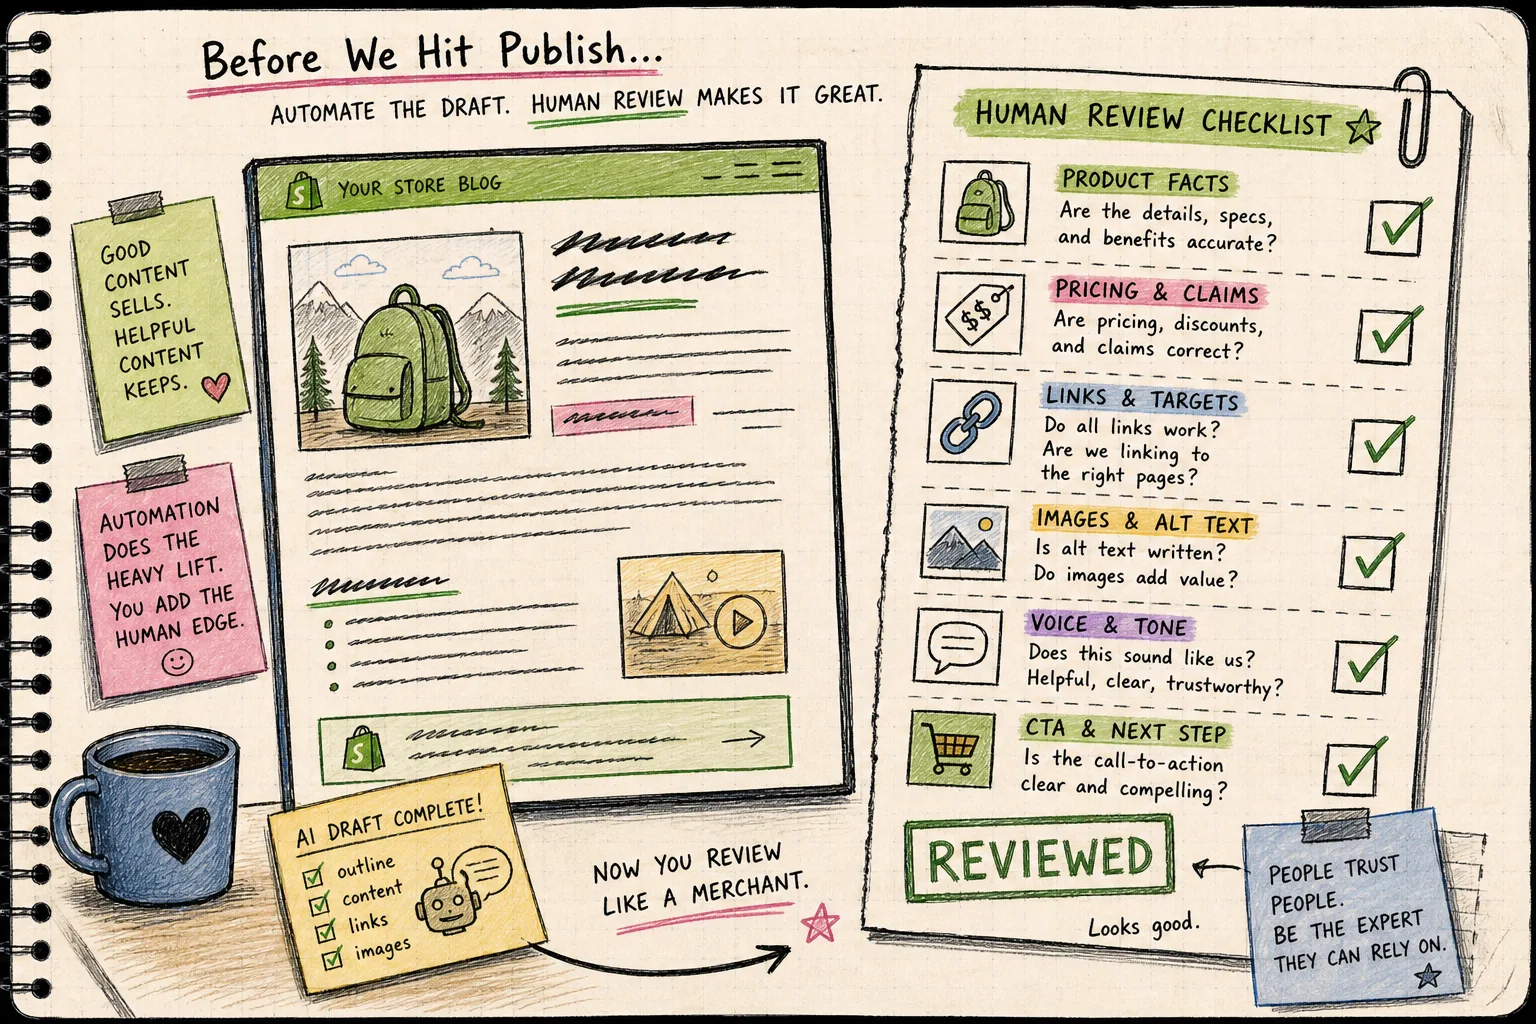 Before We Hit Publish...
AUTOMATE THE DRAFT. HUMAN REVIEW MAKES IT GREAT.
GOOD
CONTENT
SELLS.
HELPFUL
CONTENT
KEEPS.
AUTOMATION
DOES THE
HEAVY LIFT.
YOU ADD THE
HUMAN EDGE.
S
YOUR STORE BLOG
S
AI DRAFT COMPLETE!
outline
content
links
images
NOW YOU REVIEW
LIKE A MERCHANT.
HUMAN REVIEW CHECKLIST
PRODUCT FACTS
Are the details, specs,
and benefits accurate?
$$
PRICING & CLAIMS
Are pricing, discounts,
and claims correct?
LINKS & TARGETS
Do all links work?
Are we linking to
the right pages?
IMAGES & ALT TEXT
Is alt text written?
Do images add value?
VOICE & TONE
Does this sound like us?
Helpful, clear, trustworthy?
CTA & NEXT STEP
Is the call-to-action
clear and compelling?
REVIEWED
Looks good.
PEOPLE TRUST
PEOPLE.
BE THE EXPERT
THEY CAN RELY ON.